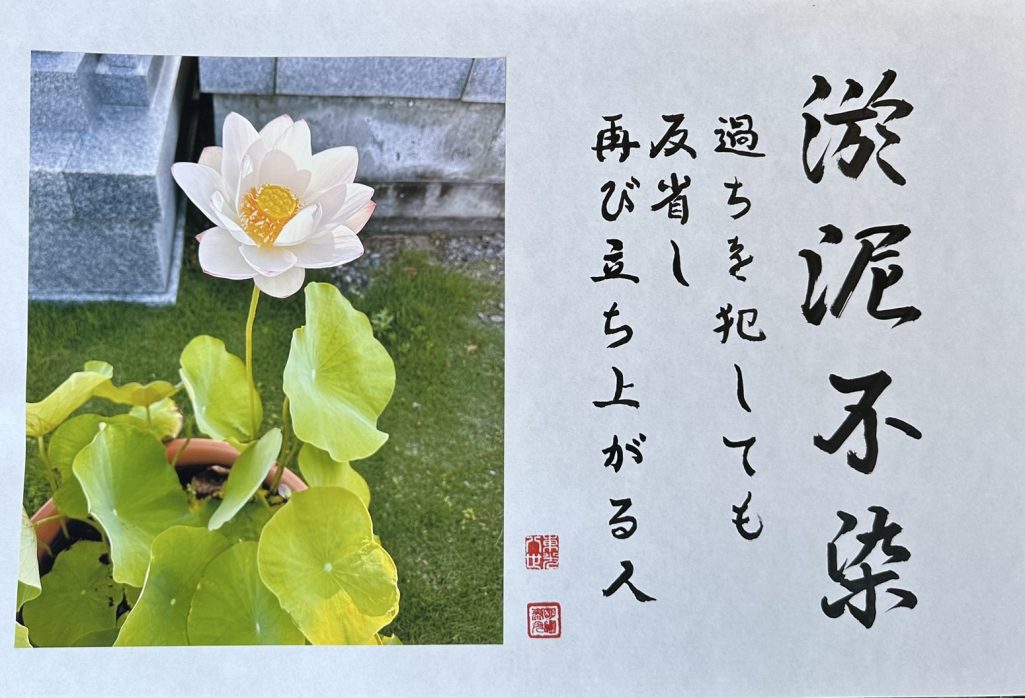 淤泥不染
過ちを犯しても
反省し
再び立ち上がる人